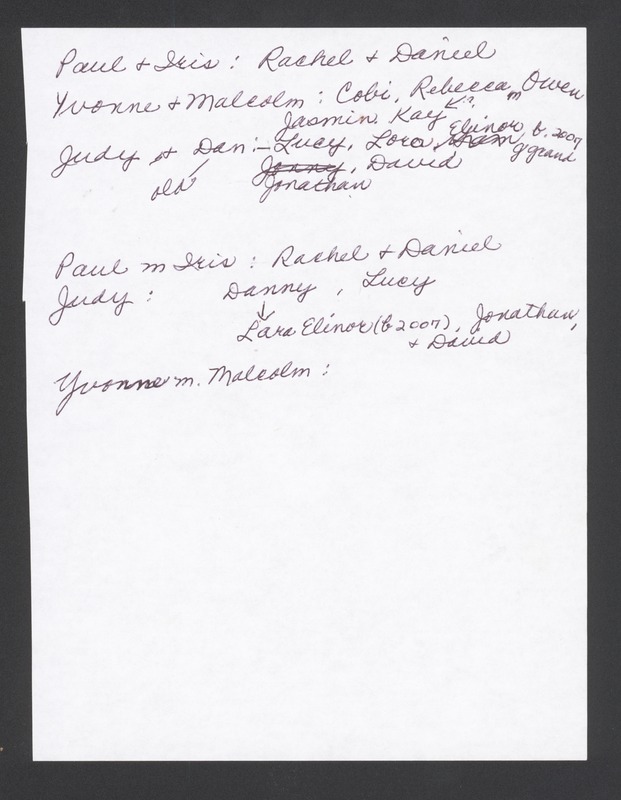 Paul + Iris : Rachel + Daniel
Yvonne + Malcolm : Cobi, Rebecca m Owen
Jasmin, Kay ↙?
Judy + Dan :- Lucy, Lora, Elinor, b. 2007
g'grand
old Jenny, David
Jonathan
Paul m Iris : Rachel + Daniel
Judy : Danny , Lucy
↓
Lara Elinor (b 2007), Jonathan,
+ David
Yvonne m. Malcolm :